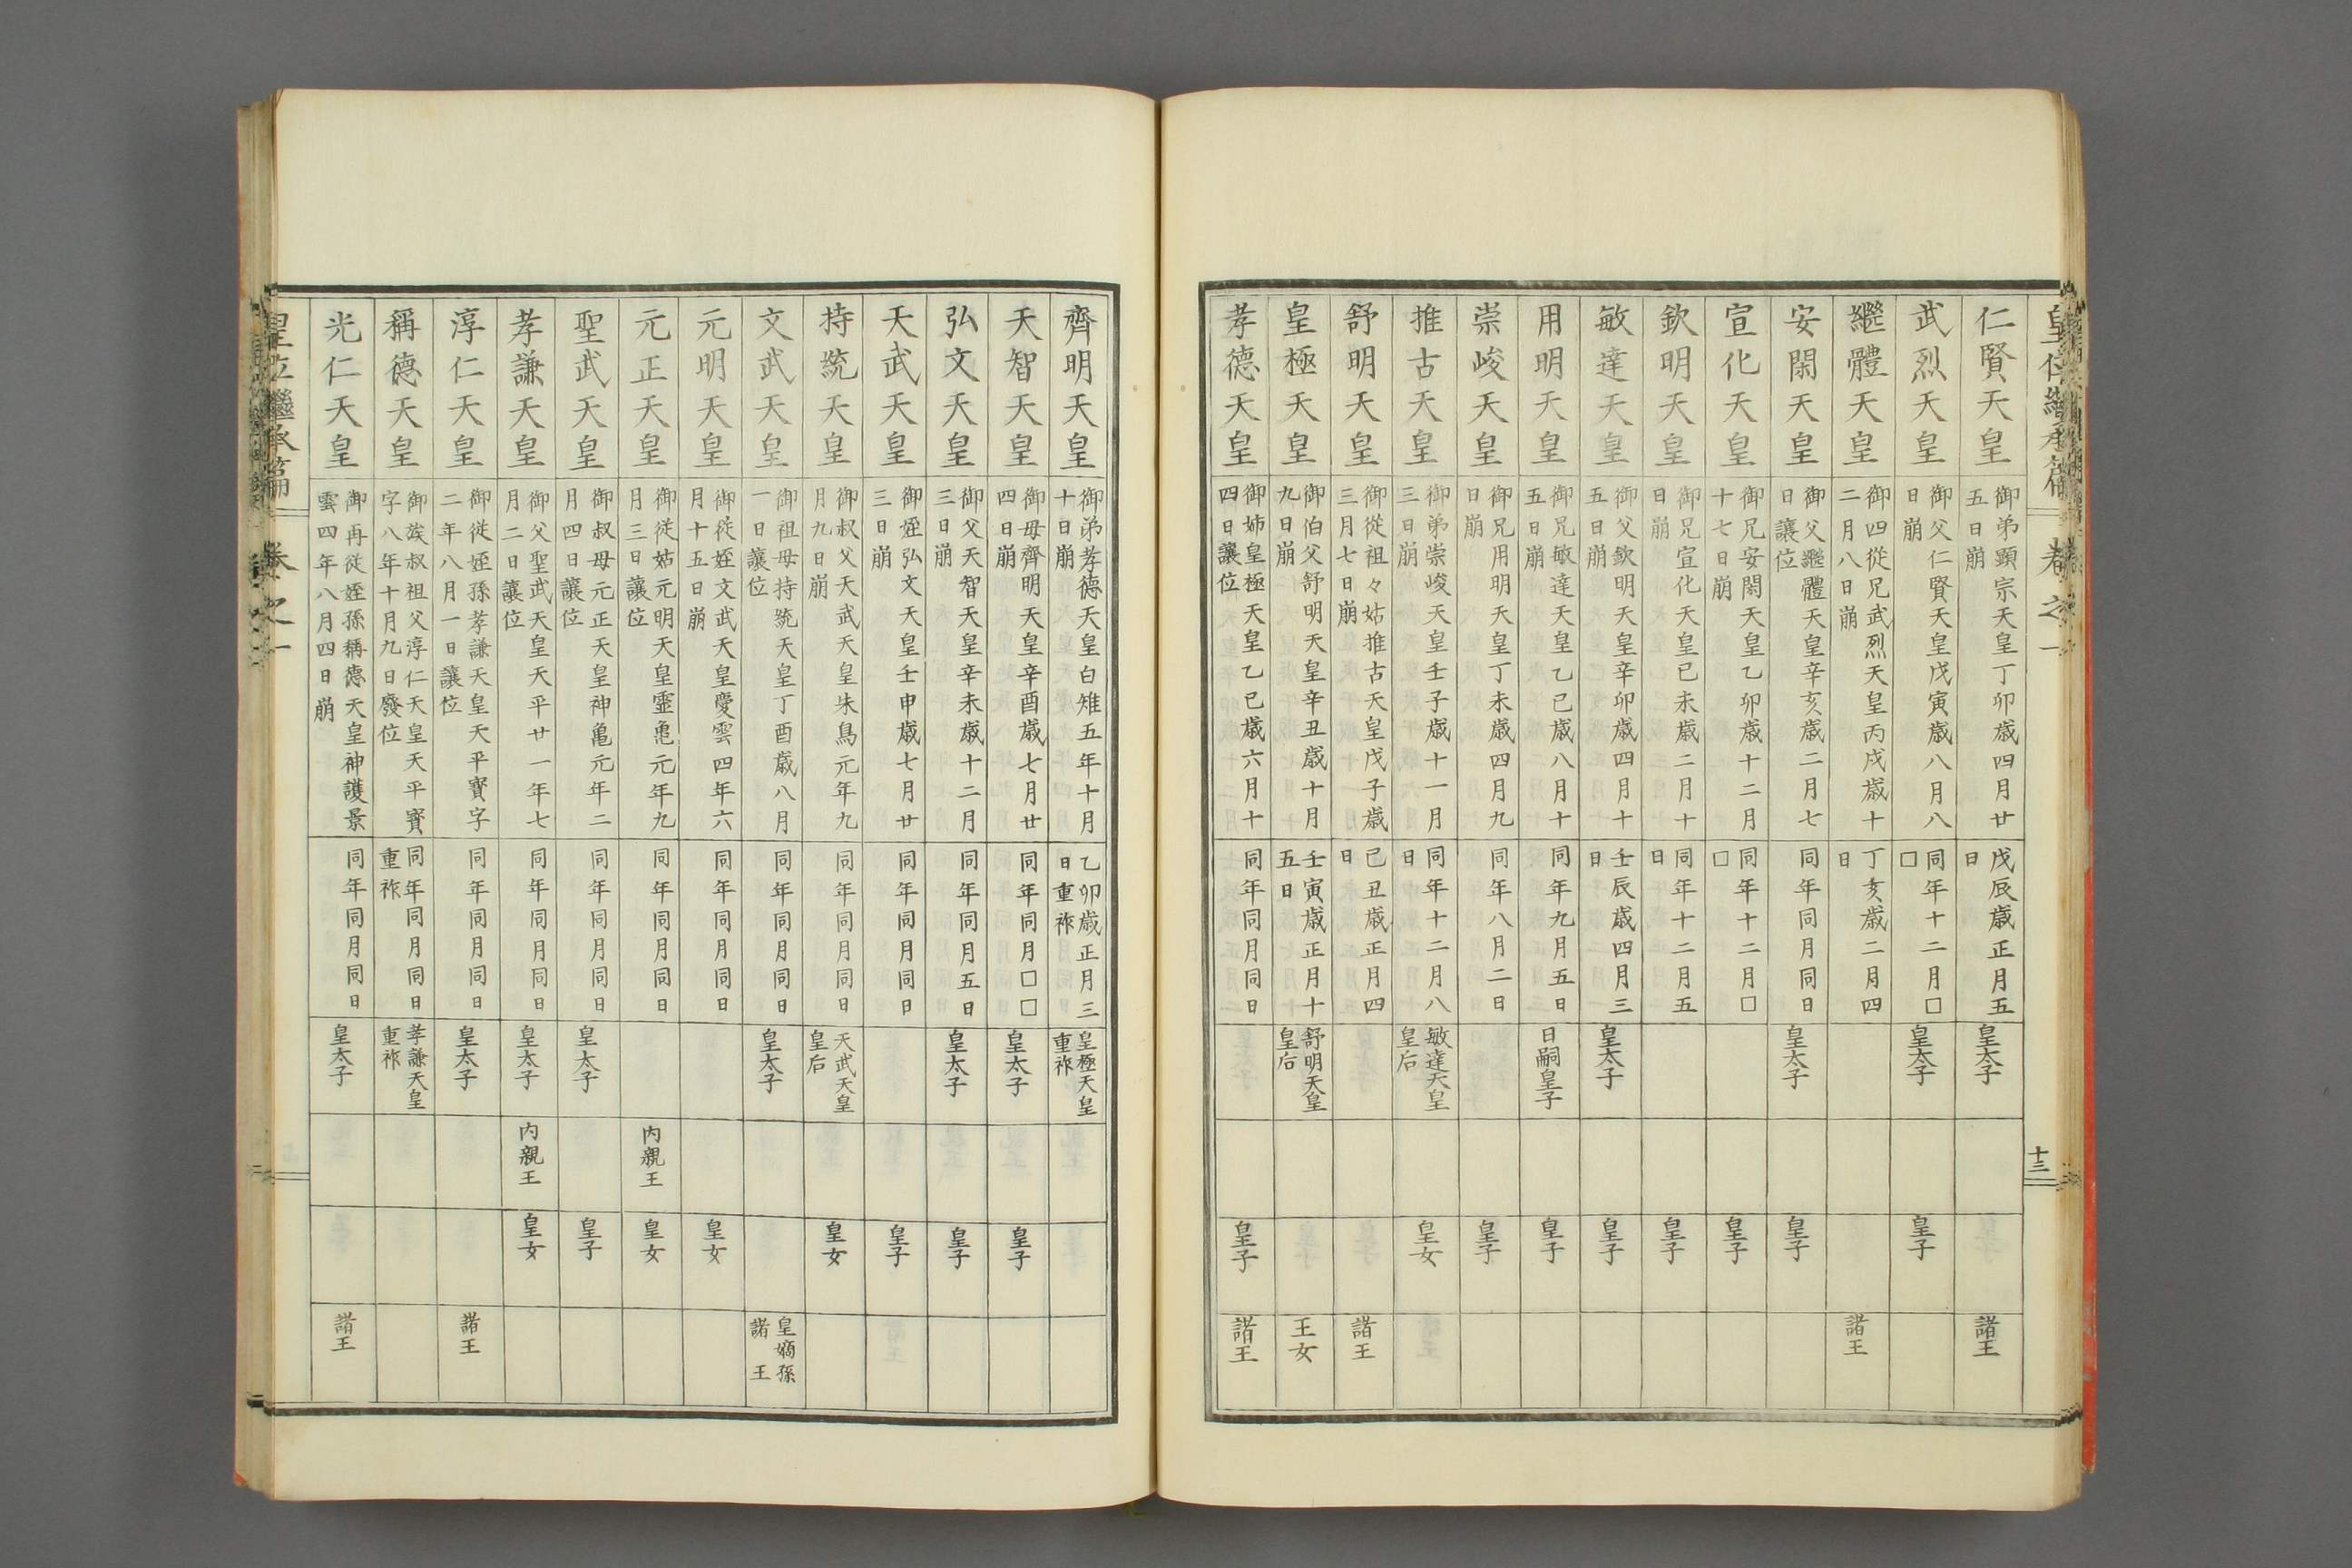 皇位繼承篇 卷之一
十三
仁賢天皇
御弟顯宗天皇丁卯歳四月廿
五日崩
戊辰歳正月五
日
皇太子
諸王
武烈天皇
御父仁賢天皇戊寅歳八月八
日崩
同年十二月□
□
皇太子
皇子
繼體天皇
御四從兄武烈天皇丙戌歳十
二月八日崩
丁亥歳二月四
日
諸王
安閑天皇
御父繼體天皇辛亥歳二月七
日讓位
同年同月同日
皇太子
皇子
宣化天皇
御兄安閑天皇乙卯歳十二月
十七日崩
同年十二月□
□
皇子
欽明天皇
御兄宣化天皇己未歳二月十
日崩
同年十二月五
日
皇子
敏達天皇
御父欽明天皇辛卯歳四月十
五日崩
壬辰歳四月三
日
皇太子
皇子
用明天皇
御兄敏達天皇乙巳歳八月十
五日崩
同年九月五日
日嗣皇子
皇子
崇峻天皇
御兄用明天皇丁未歳四月九
日崩
同年八月二日
皇子
推古天皇
御弟崇峻天皇壬子歳十一月
三日崩
同年十二月八
日
敏達天皇
皇后
皇女
舒明天皇
御從祖々姑推古天皇戊子歳
三月七日崩
己丑歳正月四
日
諸王
皇極天皇
御伯父舒明天皇辛丑歳十月
九日崩
壬寅歳正月十
五日
舒明天皇
皇后
王女
孝德天皇
御姉皇極天皇乙巳歳六月十
四日讓位
同年同月同日
皇子
諸王
齊明天皇
御弟孝德天皇白雉五年十月
十日崩
乙卯歳正月三
日重祚
皇極天皇
重祚
天智天皇
御母齊明天皇辛酉歳七月廿
四日崩
同年同月□□
皇太子
皇子
弘文天皇
御父天智天皇辛未歳十二月
三日崩
同年同月五日
皇太子
皇子
天武天皇
御姪弘文天皇壬申歳七月廿
三日崩
同年同月同日
皇子
持統天皇
御叔父天武天皇朱鳥元年九
月九日崩
同年同月同日
天武天皇
皇后
皇女
文武天皇
御祖母持統天皇丁酉歳八月
一日讓位
同年同月同日
皇太子
皇嫡孫
諸王
元明天皇
御從姪文武天皇慶雲四年六
月十五日崩
同年同月同日
皇女
元正天皇
御從姑元明天皇靈亀元年九
月三日讓位
同年同月同日
内親王
皇女
聖武天皇
御叔母元正天皇神亀元年二
月四日讓位
同年同月同日
皇太子
皇子
孝謙天皇
御父聖武天皇天平廿一年七
月二日讓位
同年同月同日
皇太子
内親王
皇女
淳仁天皇
御從姪孫孝謙天皇天平寶字
二年八月一日讓位
同年同月同日
皇太子
諸王
稱德天皇
御族叔祖父淳仁天皇天平寶
字八年十月九日廢位
同年同月同日
重祚
孝謙天皇
重祚
光仁天皇
御再從姪孫稱德天皇神護景
雲四年八月四日崩
同年同月同日
皇太子
諸王
皇位繼承篇 卷之一